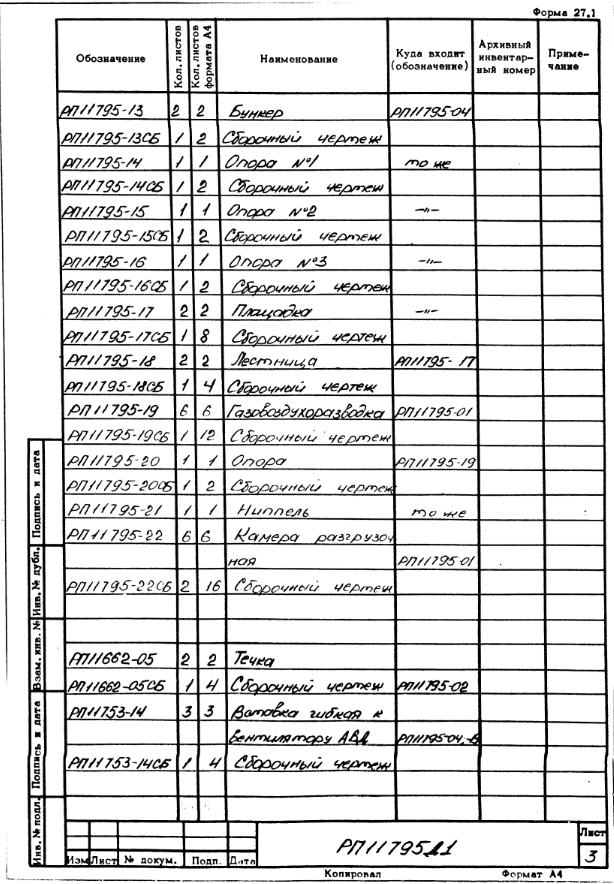 Форма 27,1
Обозначение Кол. листов Кол. листов формата А4 Наименование Куда входит (обозначение) Архивный инвентарный номер Примечание
РП11795-13 2 2 Бункер РП11795-04
РП11795-13СБ 1 2 Сборочный чертеж
РП11795-14 1 1 Опора №1 то же
РП11795-14СБ 1 2 Сборочный чертеж
РП11795-15 1 1 Опора №2 –"–
РП11795-15СБ 1 2 Сборочный чертеж
РП11795-16 1 1 Опора №3 –"–
РП11795-16СБ 1 2 Сборочный чертеж
РП11795-17 2 2 Плащадка –"–
РП11795-17СБ 1 8 Сборочный чертеж
РП11795-18 2 2 Лестница РП11795-17
РП11795-18СБ 1 4 Сборочный чертеж
РП11795-19 6 6 Газовоздухоразводка РП11795-01
РП11795-19СБ 1 12 Сборочный чертеж
РП11795-20 1 1 Опора РП11795-19
РП11795-20СБ 1 2 Сборочный чертеж
РП11795-21 1 1 Ниппель то же
РП11795-22 6 6 Камера разгрузоч
ная РП11795-01
РП11795-22СБ 2 16 Сборочный чертеж
РП11662-05 2 2 Течка
РП11662-05СБ 1 4 Сборочный чертеж РП11795-02
РП11753-14 3 3 гибкая к
вентилятору РП11795-04,
РП11753-14СБ 1 4 Сборочный чертеж
Подпись и дата
Инв. № дубл.
Взам. инв. №
Подпись и дата
Инв. № подл.
Изм Лист № докум. Подп. Дата
РП11795
Лист
3
Копировал Формат А4